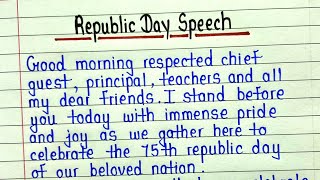 Republic Day Speech
Good morning respected chief
guest, principal, teachers and all
my dear friends. I stand before
you today with immense pride
and joy as we gather here to
celebrate the 75th republic day
of our beloved nation.